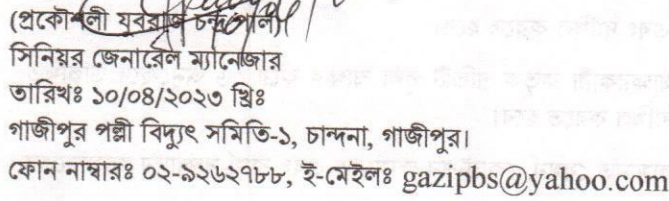 (প্রকৌশলী যুবরাজ চন্দ্র পাল)
সিনিয়র জেনারেল ম্যানেজার
তারিখঃ ১০/০৪/২০২৩ খ্রিঃ
গাজীপুর পল্লী বিদ্যুৎ সমিতি-১, চান্দনা, গাজীপুর।
ফোন নাম্বারঃ ০২-৯২৬২৭৮৮, ই-মেইলঃ gazipbs@yahoo.com